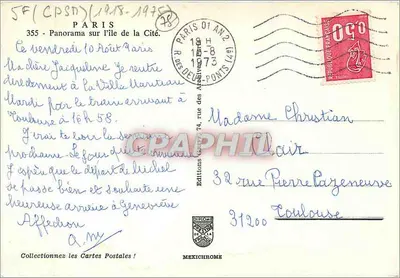 JF/(CPSD)/(1918-1975)
78
PARIS
355 - Panorama sur l'Ile de la Cité.
Ce vendredi 10 Août Paris
Ma chère Jacqueline Je rentre
directement à la Villa
Mardi par le train arrivant à
Toulouse à 16h 58.
J'irai te voir la semaine
prochaine. Le jour
J'espère que le départ de Michel
se passe bien et souhaite une
heureuse arrivée à Geneviève
Affection
Collectionnez les Cartes Postales !
PARIS 01 AN 2 (61)
18 H
10-8
1973
R. DES DEUX-PONTS
0,50
REPUBLIQUE FRANÇAISE
Editions
74, rue des Archives
MEXICHROME
Madame Christian
Clair
32 rue Pierre Cazeneuve
31200 Toulouse
CPARAMA.com